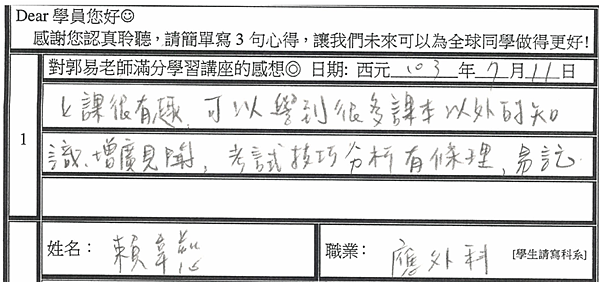 Dear 學員您好☺
感謝您認真聆聽，請簡單寫 3 句心得，讓我們未來可以為全球同學做得更好!
對郭易老師滿分學習講座的感想◎ 日期: 西元 103 年 7 月 11 日
1
上課很有趣,可以學到很多課本以外的知
識、增廣見聞,考試技巧分析有條理,易記.
姓名： 賴韋
職業： 應外科 [學生請寫科系]